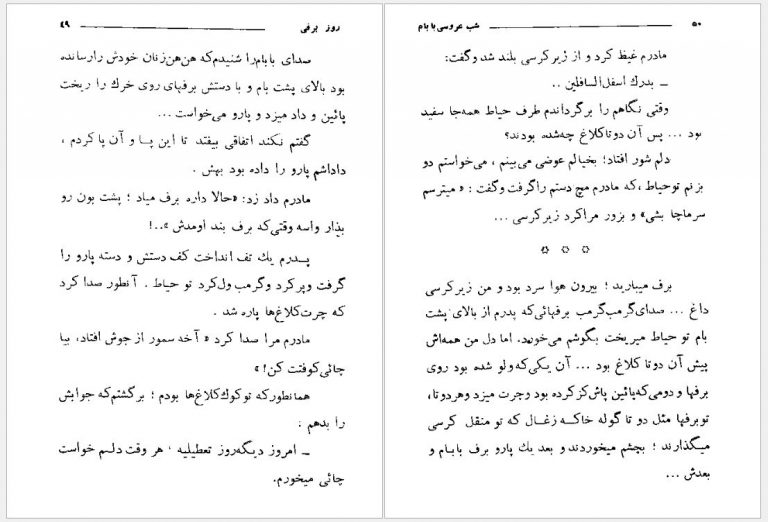 ۵۰ شب عروسی بابام
مادرم غیظ کرد و از زیرکرسی بلند شد وگفت:
ـ بدرك اسفل‌السافلین ..
وقتی نگاهم را برگرداندم طرف حیاط همه‌جا سفید
بود ... پس آن دوتاکلاغ چه‌شده بودند؟
دلم شور افتاد؛ بخیالم عوضی می‌بینم ، می‌خواستم دو
بزنم توحیاط ،که مادرم مچ دستم راگرفت وگفت : « میترسم
سرماچا بشی» و بزور مراکرد زیرکرسی ...
۞ ۞ ۞
برف میبارید ؛ بیرون هوا سرد بود و من زیرکرسی
داغ ... صدای‌گرمب‌گرمب برفهائی‌که پدرم از بالای پشت
بام تو حیاط میریخت بگوشم می‌خورد. اما دل من همه‌اش
پیش آن دوتا کلاغ بود ... آن یکی‌که ولو شده بود روی
برفها و دومی‌که‌پائین پاش‌کزکرده بود وچرت میزد وهردوتا،
توبرفها مثل دو تا گوله خاکه زغال که تو منقل کرسی
میگذارند ؛ بچشم میخوردند و بعد یك پارو برف بابام و
بعدش ...
روز برفی ۴۹
صدای بابام‌را شنیدم‌که هن‌هن‌زنان خودش رارسانده
بود بالای پشت بام و با دستش برفهای روی خرك را ریخت
پائین و داد میزد و پارو می‌خواست...
گفتم نکند اتفاقی بیفتد تا این پـا و آن پاکردم ،
داداشم پارو را داده بود بهش .
مادرم داد زد: «حالا داره برف میاد ؛ پشت بون رو
بذار واسه وقتی‌که برف بند اومدش »..!
پـدرم یك تف انداخت کف دستش و دسته پارو را
گرفت وپرکرد وگرمب ول‌کرد تو حیاط . آنطور صدا کرد
که چرت‌کلاغ‌ها پاره شد .
مادرم مرا صدا کرد « آخه سمور از جوش افتاد، بیا
چائی‌کوفتت کن! »
همانطورکه توکوك‌کلاغ‌ها بودم ؛ برگشتم‌که جوابش
را بدهم :
ـ امروز دیگه‌روز تعطیلیه ، هر وقت دلـم خواست
چائی میخورم.